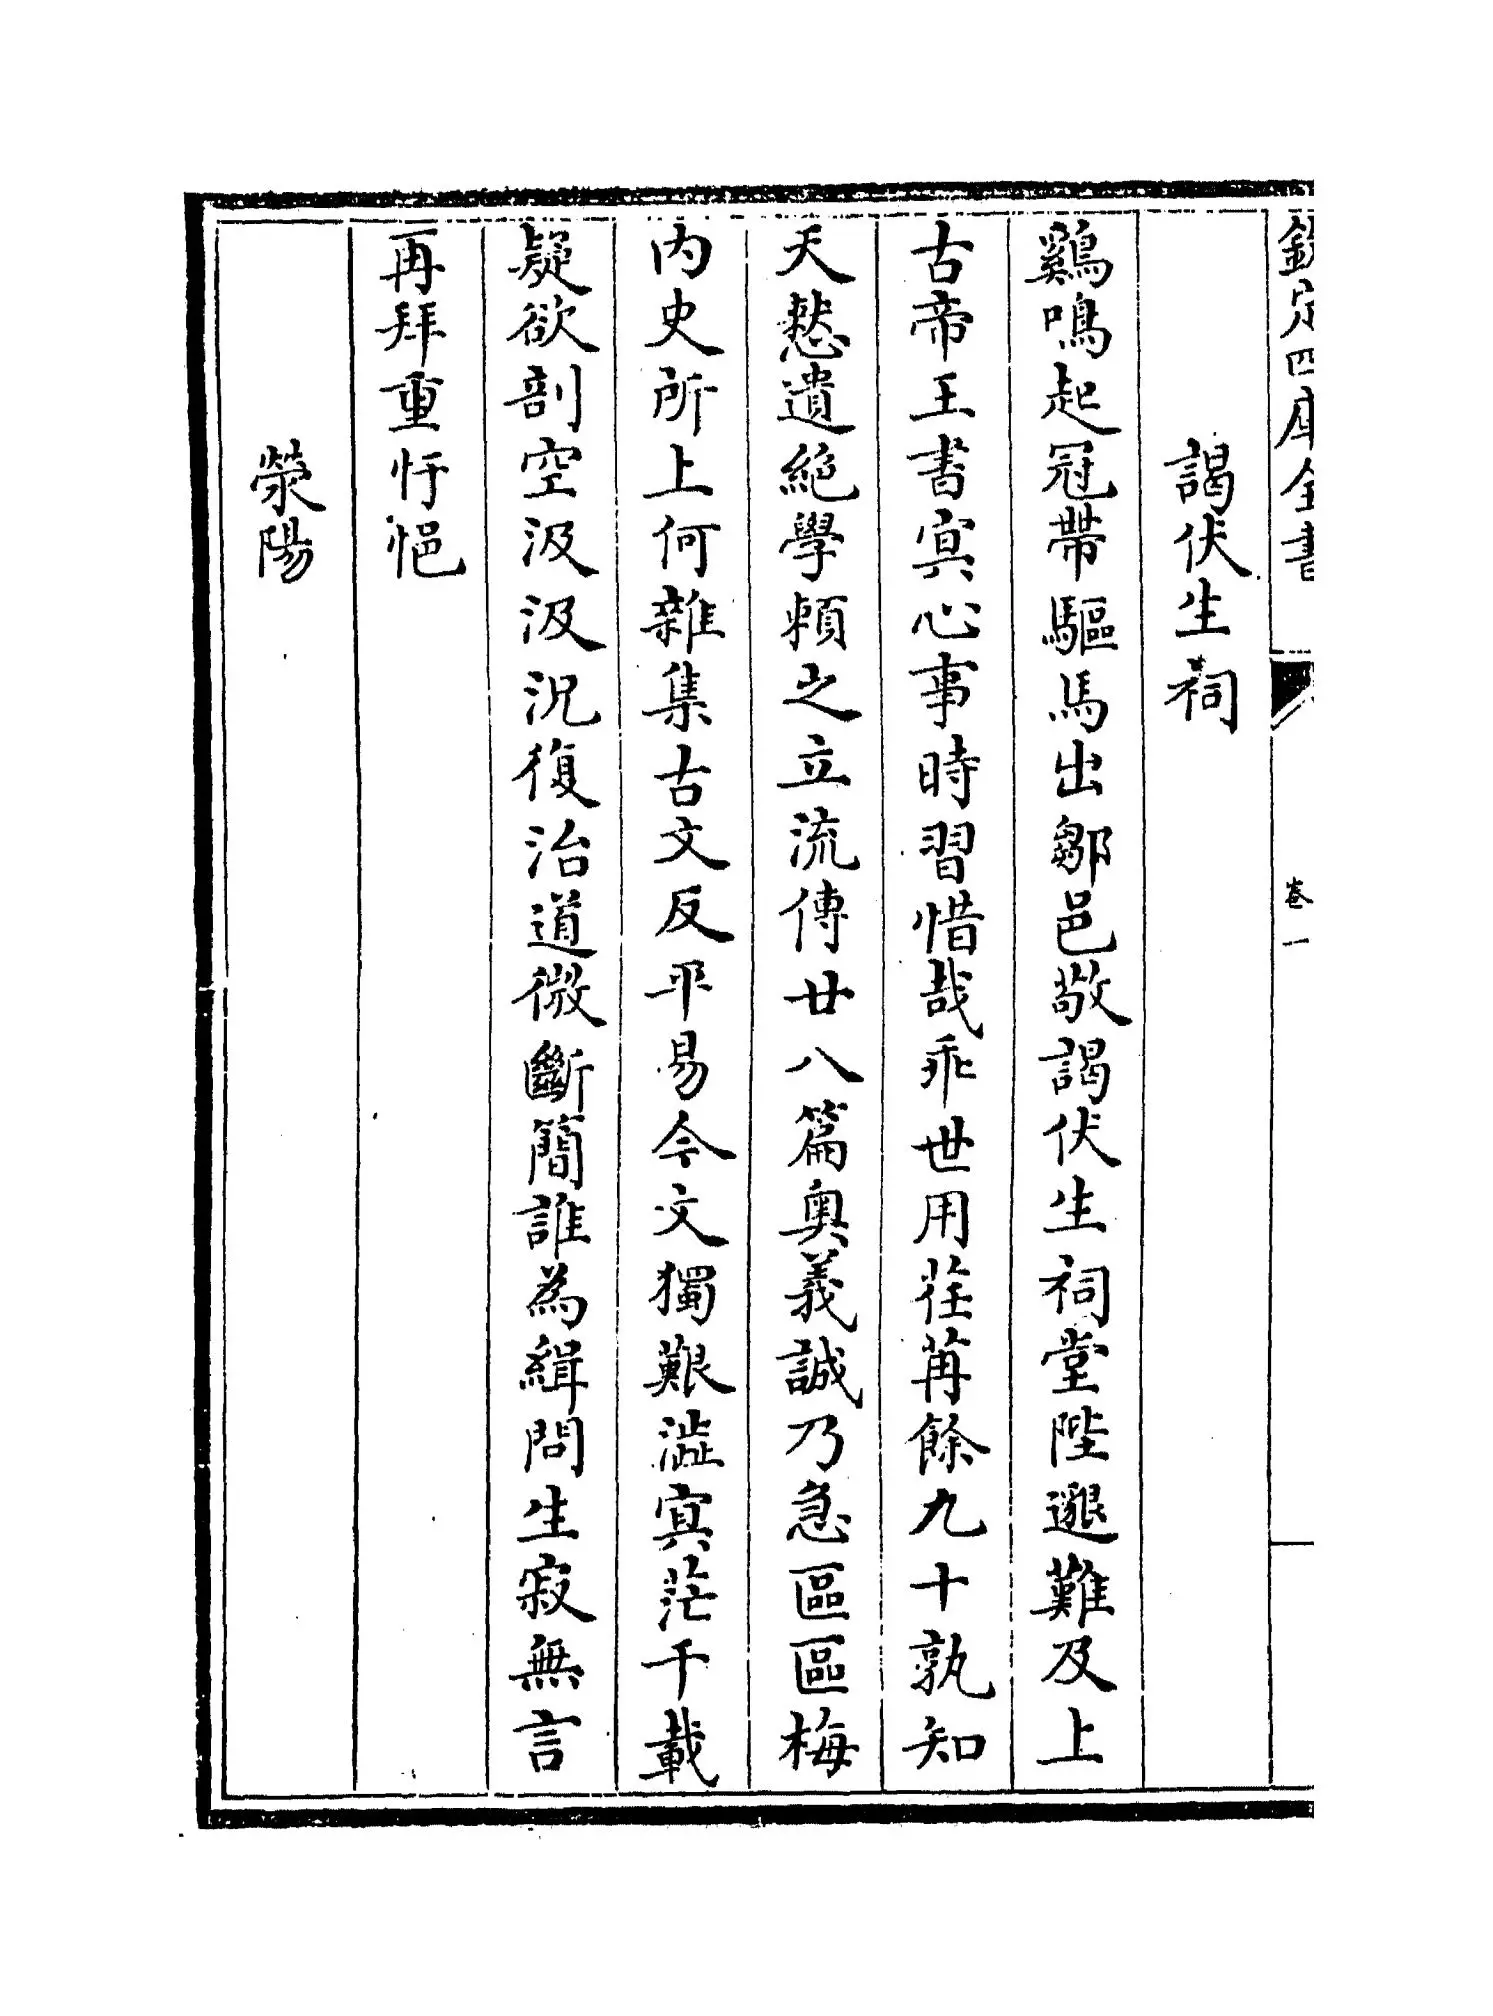 欽定四庫全書
卷一
謁伏生祠
鷄鳴起冠帶驅馬出鄒邑敬謁伏生祠堂陛邈難及上
古帝王書㝠心事時習惜哉乖世用荏苒餘九十孰知
天憖遺絶學頼之立流傳廿八篇奥義誠乃急區區梅
內史所上何雜集古文反平易今文獨艱澁㝠茫千載
疑欲剖空汲汲況復治道微斷簡誰為緝問生寂無言
再拜重忬悒
滎陽